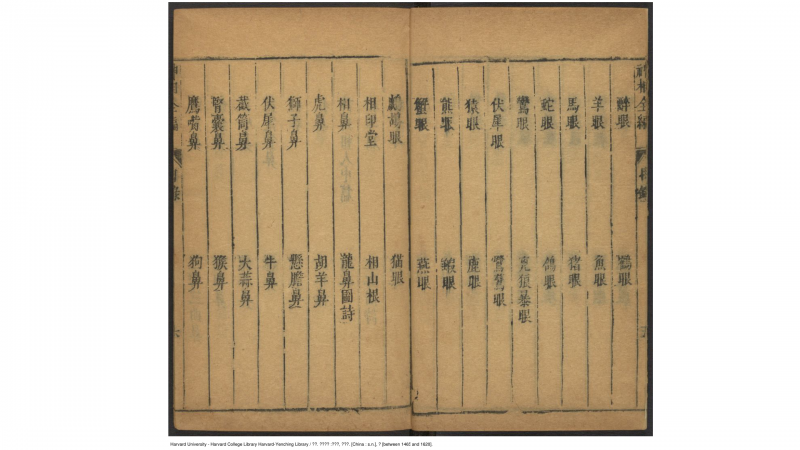 神相全編 目錄
醉眼 鶴眼
羊眼 魚眼
馬眼 猪眼
蛇眼 鴿眼
鸞眼
伏犀眼 鴛鴦眼
猿眼 鹿眼
熊眼 蝦眼
蟹眼 燕眼
鷓鴣眼 猫眼
相印堂 相山根
相鼻 龍鼻圖詩
虎鼻 胡羊鼻
獅子鼻 懸膽鼻
伏犀鼻 牛鼻
截筒鼻 大蒜鼻
腎囊鼻 猴鼻
鷹嘴鼻 狗鼻
神相全編 目錄 六
Harvard University - Harvard College Library Harvard-Yenching Library / ??. ???? :???, ???. [China : s.n.], ? [between 1465 and 1620].